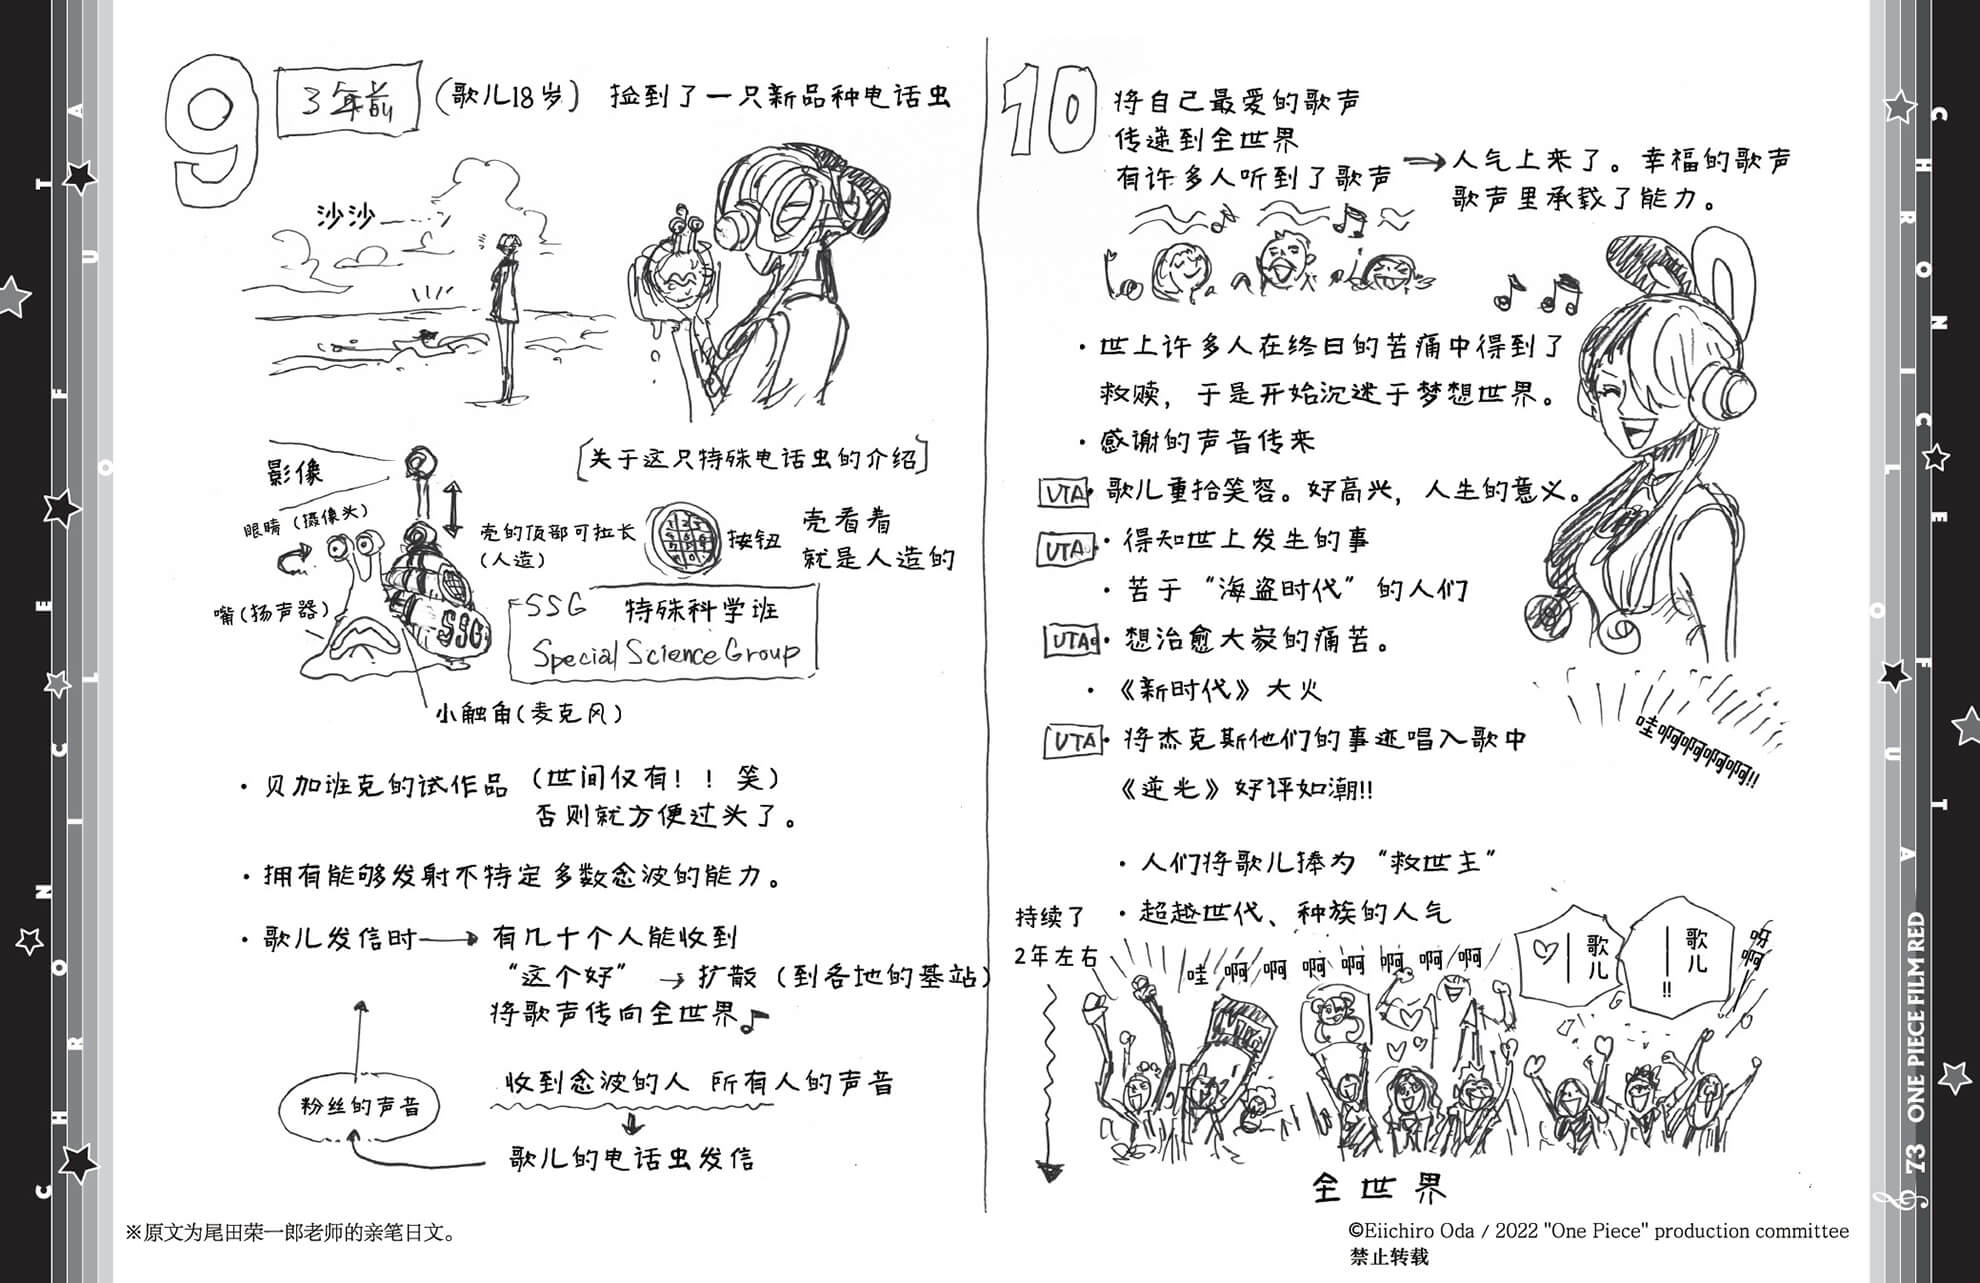 9
3年前
(歌儿18岁) 捡到了一只新品种电话虫
沙沙
影像
眼睛(摄像头)
嘴(扬声器)
小触角(麦克风)
壳的顶部可拉长
(人造)
[关于这只特殊电话虫的介绍]
按钮
壳看着
就是人造的
SSG
SSG 特殊科学班
Special Science Group
・贝加班克的试作品 (世间仅有！！笑)
否则就方便过头了。
・拥有能够发射不特定多数念波的能力。
・歌儿发信时→有几十个人能收到
“这个好” → 扩散（到各地的基站）
将歌声传向全世界♪
收到念波的人 所有人的声音
歌儿的电话虫发信
粉丝的声音
※原文为尾田荣一郎老师的亲笔日文。
10
将自己最爱的歌声
传递到全世界
有许多人听到了歌声
→人气上来了。幸福的歌声
歌声里承载了能力。
・世上许多人在终日的苦痛中得到了
救赎，于是开始沉迷于梦想世界。
・感谢的声音传来
UTA・歌儿重拾笑容。好高兴，人生的意义。
UTA・得知世上发生的事
・苦于“海盗时代”的人们
UTA・想治愈大家的痛苦。
・《新时代》大火
UTA・将杰克斯他们的事迹唱入歌中
《逆光》好评如潮!!
哇啊啊啊啊!!
・人们将歌儿捧为“救世主”
・超越世代、种族的人气
持续了
2年左右
哇啊啊啊啊啊啊啊
歌儿—♡
歌儿—!!
呀啊
全世界
©Eiichiro Oda / 2022 "One Piece" production committee
禁止转载
CHRONICLE FT OUTA
CHRONICLE FT OUTA
73 ONE PIECE FILM RED